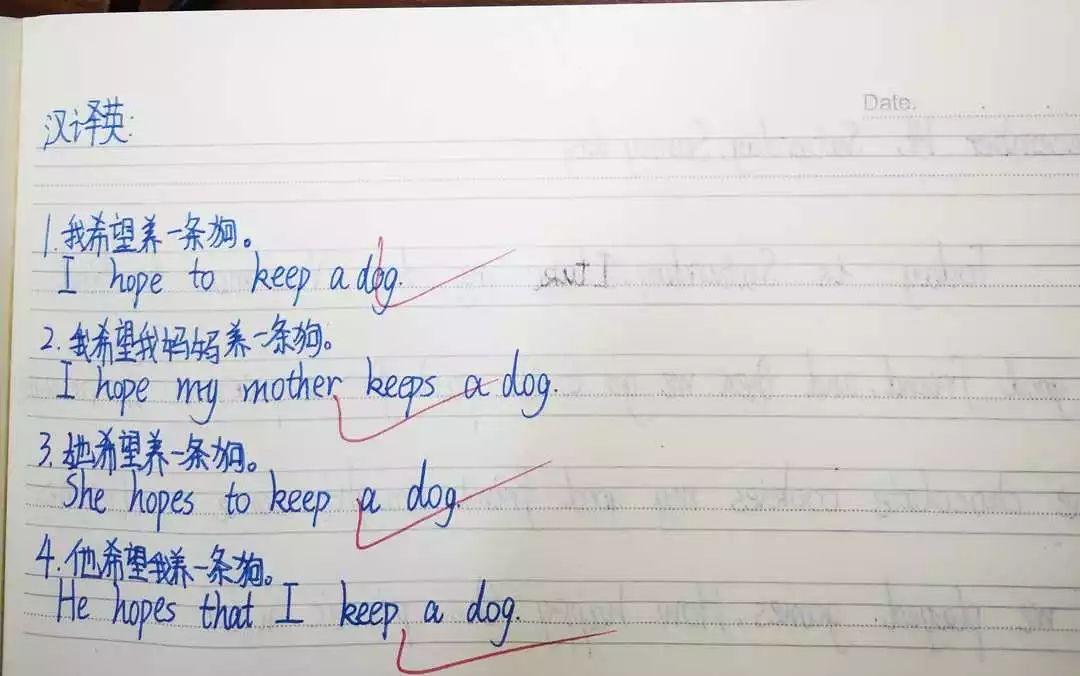 Date.
汉译英:
1.我希望养一条狗。
I hope to keep a dog.
2.我希望我妈妈养一条狗。
I hope my mother keeps a dog.
3.她希望养一条狗。
She hopes to keep a dog.
4.他希望我养一条狗。
He hopes that I keep a dog.